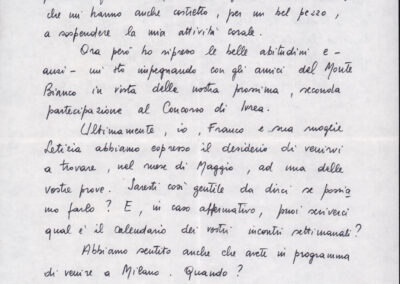 che mi hanno anche costretto, per un bel pezzo,
a sospendere la mia attività corale.
Ora però ho ripreso le belle abitudini e -
anzi - mi sto impegnando con gli amici del Monte
Bianco in vista della nostra prossima, seconda
partecipazione al Concorso di Ivrea.
Ultimamente, io, Franco e sua moglie
Letizia abbiamo espresso il desiderio di venirvi
a trovare, nel mese di Maggio, ad una delle
vostre prove. Saresti così gentile da dirci se possia-
mo farlo? E, in caso affermativo, puoi scriverci
qual è il calendario dei vostri incontri settimanali?
Abbiamo sentito anche che avete in programma
di venire a Milano. Quando?